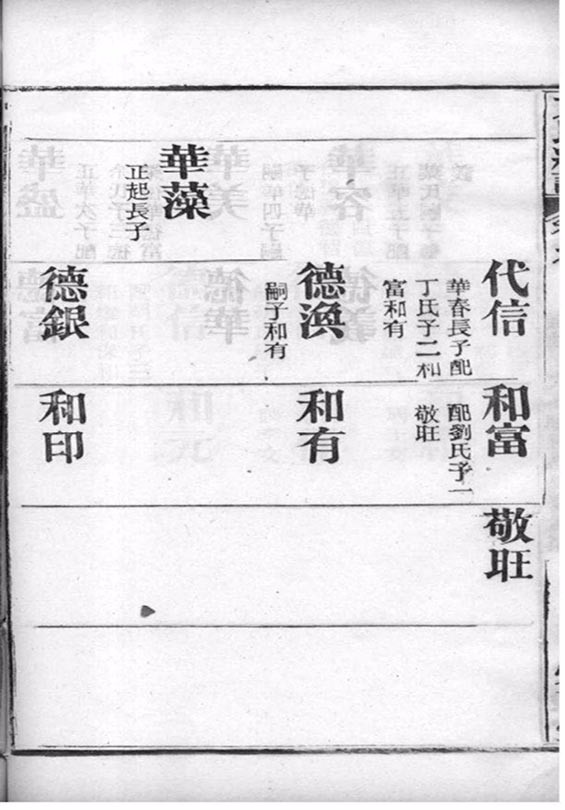 代信
華春長子配
丁氏子二和
富和有
和富
配劉氏子一
敬旺
敬旺
德渙
嗣子和有
和有
華藻
正起長子
德銀
和印